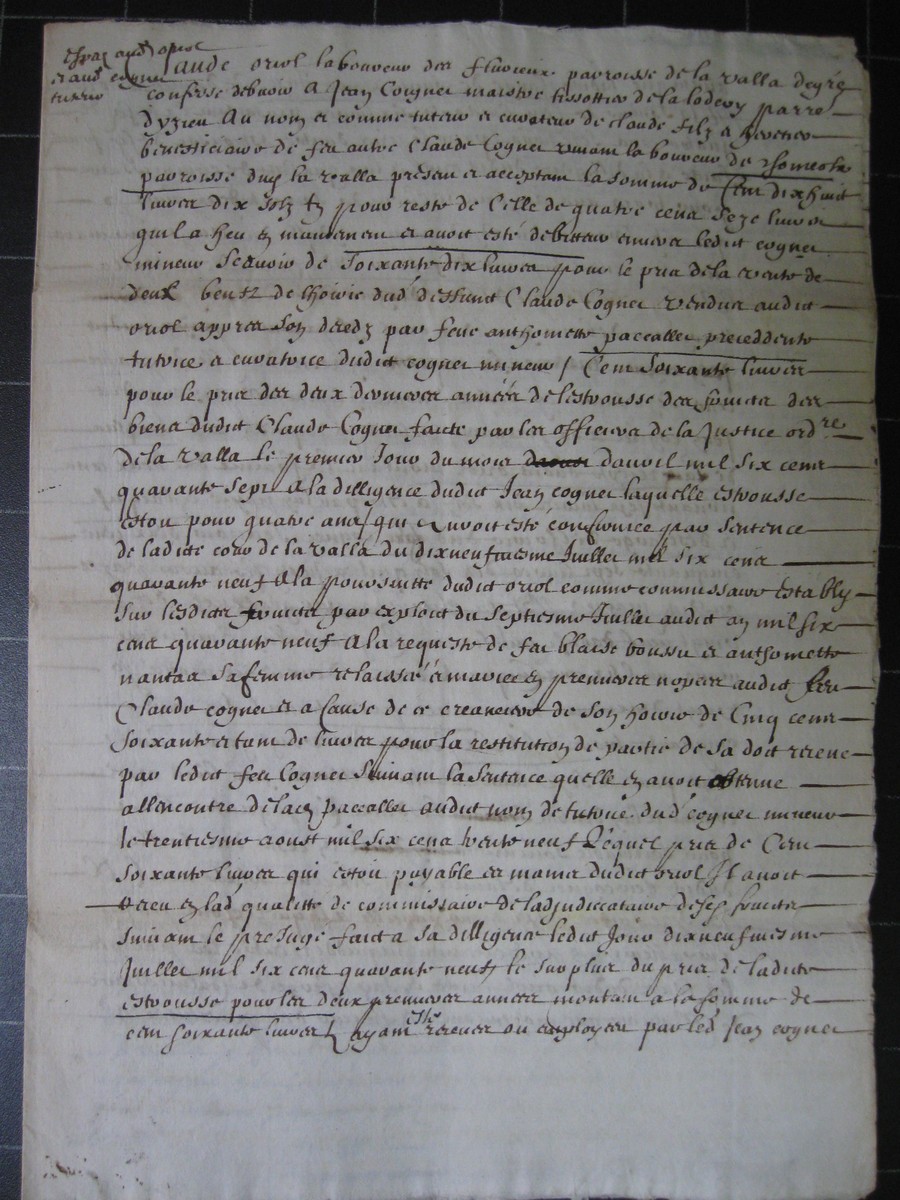 aud oriol
et aud cognet
tuteur
Claude oriol laboureur des fluvieux parroisse de la valla de gré
confesse debvoir A Jean Coignet maistre tissottier de paroisse
dyzieu Au nom et comme tuteur et curateur de claude filz et heretier
beneficiaire de feu autre Claude Cognet vivant laboureur de
parroisse dud la valla présent et acceptant la somme de Cent dixhuit
livres dix solz tz pour reste de Celle de quatre cens seze livres
quil a heu et maintenent et avoit esté débitteur envers ledict cogner
mineur Scavoir de Soixante dix livres pour le pris de la vente de
deux beufz de lhoirie dud deffunt Claude Cogner vendus audict
oriol appres son deredz par feue anthomette paccallet preceddente
tutrice et curatrice dudict cogner mineur / Cent Soixante livres
pour le pris des deux dernieres années de lestrousse des fruicts des
biens dudict Claude Cogner faicte par les officiers de la Justice ordre
de la valla le premier Jour du mois davril mil six cens
quarante sept A la dilligence dudict Jean cogner laquelle estrousse
estoit pour quatre ans / qui avoit esté par sentence
de ladicte cour de la valla du dixneufviesme Juillet mil six cens
quarante neuf A la poursuitte dudict oriol comme commissaire estably
sur lesdicts fruicts par exploit du septiesme Juillet audict an mil six
cens quarante neuf A la requeste de feu blaise boussu et anthomette
nantas sa femme relaissée et mariée en premieres nopces audict feu
Claude cogner et a Cause de ce creanciere de son hoirie de Cinq cens
soixante et tant de livres pour la restitution de partie de sa doit receue
par ledict feu Cogner Suivant la Sentence quelle en avoit obtenue
allencontre de lad paccallet audict nom de tutrice dud cogner mineur
le trentiesme aoust mil six cens trente neuf Lequel pris de Cent
soixante livres qui estoit payable es mains dudict oriol Il avoit
receu en lad qualitte de commissaire de ladjudiccataire desd fruicts
suivant le prejuge faict a sa dilligence ledict Jour dixneufviesme
Juillet mil six cens quarante neuf le surplus du pris de ladicte
estrousse pour les deux premieres années montant a la somme de
cent soixante livres tz ayant esté receues ou employees par led Jean cogner